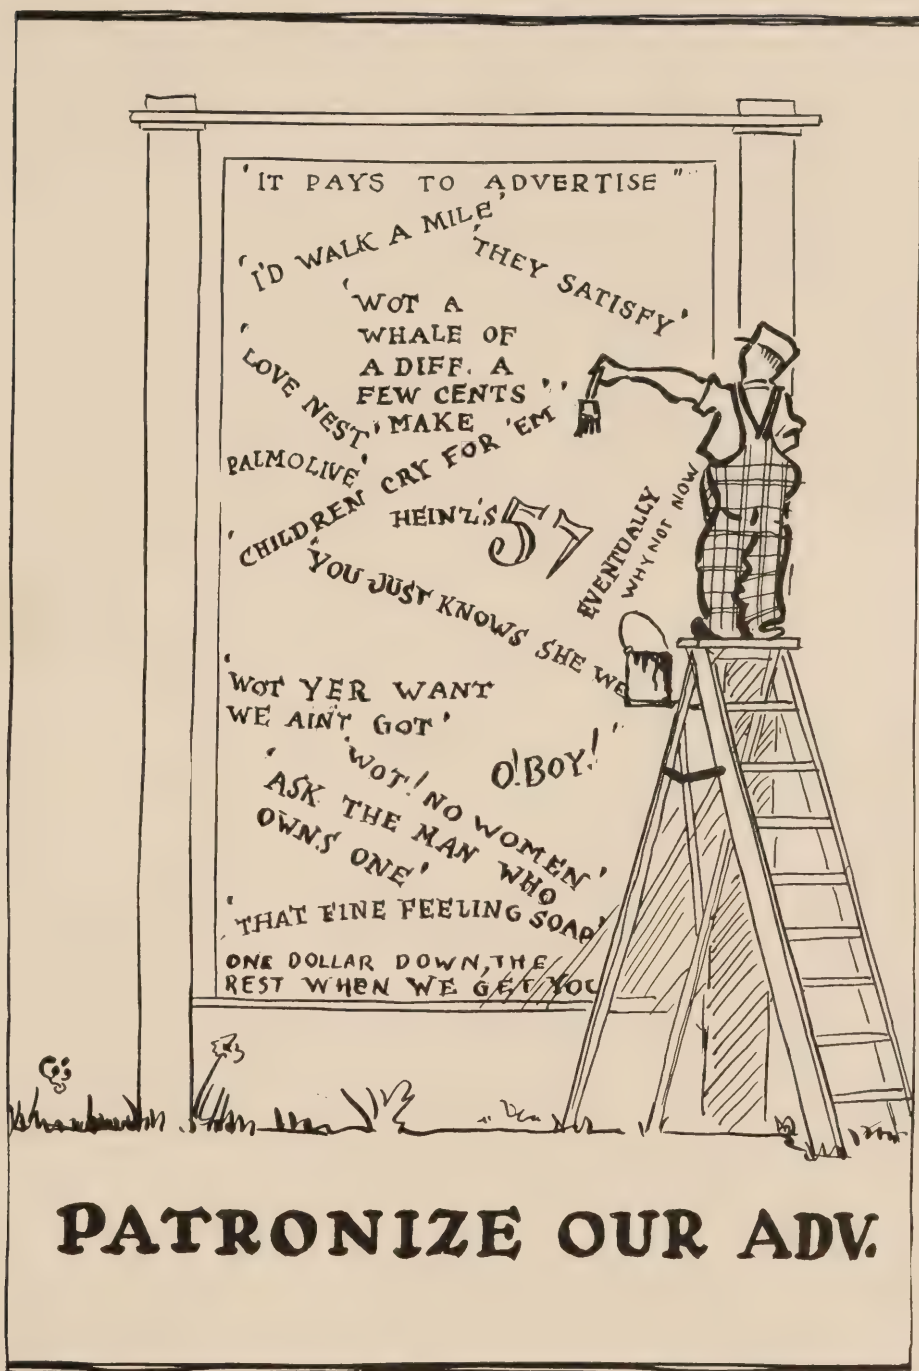 'IT PAYS TO ADVERTISE"
'I'D WALK A MILE'
'THEY SATISFY'
'WOT A
WHALE OF
A DIFF. A
FEW CENTS
MAKE'
'LOVE NEST'
PALMOLIVE'
'CHILDREN CRY FOR 'EM'
HEINZ'S 57
EVENTUALLY
WHY NOT NOW
'YOU JUST KNOWS SHE WE
'WOT YER WANT
WE AIN'T GOT'
O! BOY!'
'WOT! NO WOMEN'
'ASK THE MAN WHO
OWNS ONE'
'THAT FINE FEELING SOAP'
ONE DOLLAR DOWN, THE
REST WHEN WE GET YOU
PATRONIZE OUR ADV.